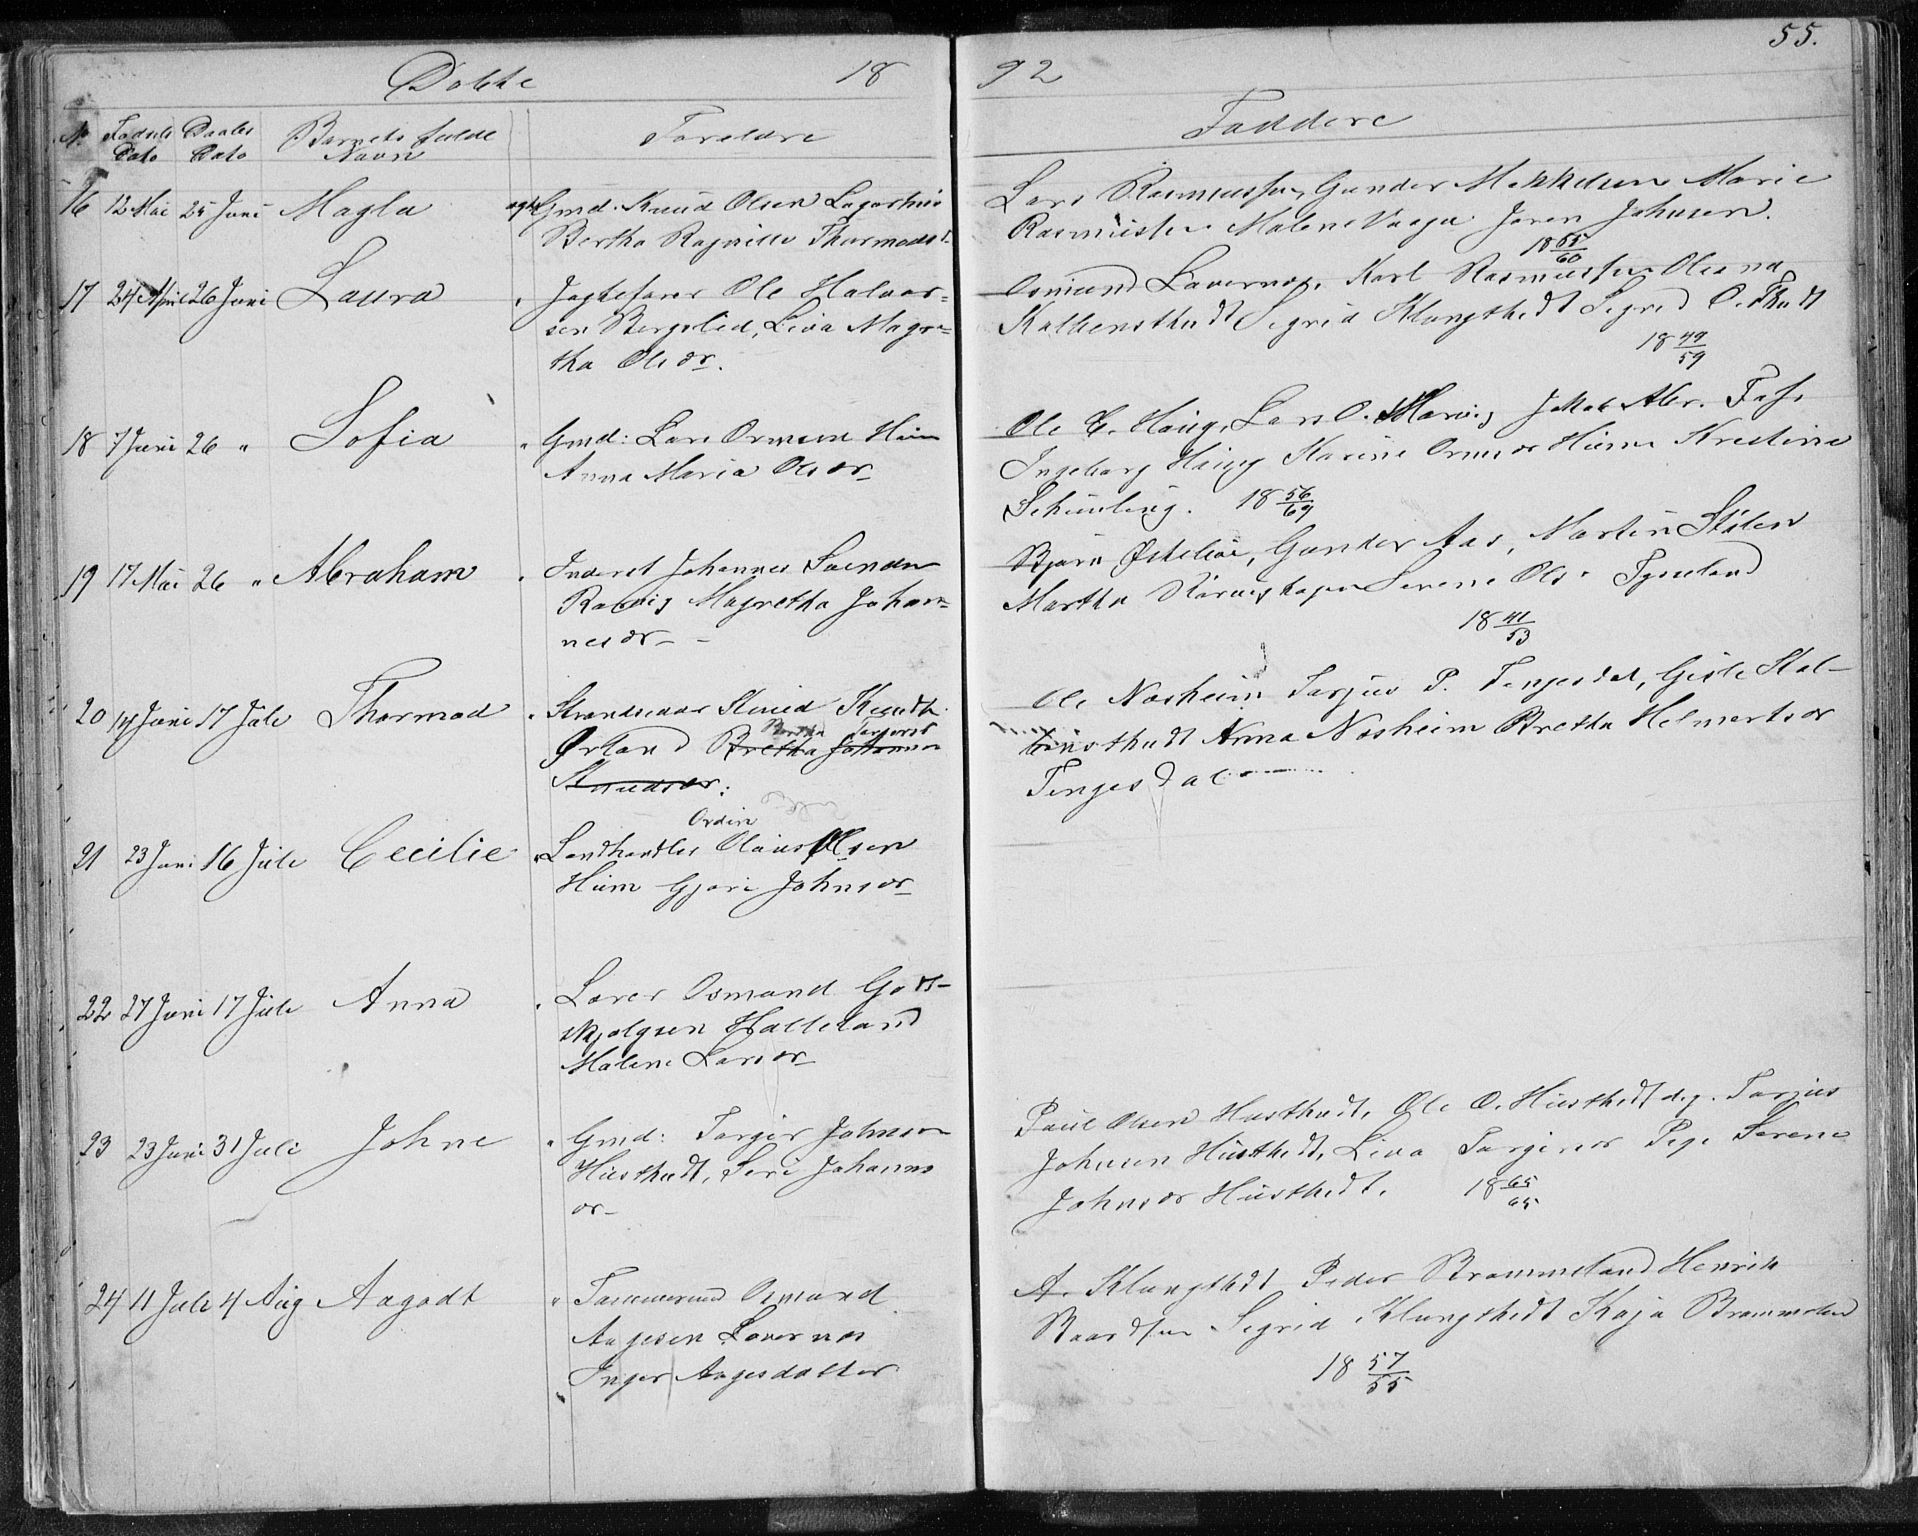 55.
Døbte 18 92
No Fødsels Dato Daabs Dato Barnets fulde Navn Foreldre Faddere
16 12 Mai 25 Juni Magla ægte Gmd. Knud Olsen
Bertha Ragnille Thormodsd.
Lars Rasmussen, Gunder Mikkelsen Marie
Rasmussen Malene Vaage Joren Johnsen.
18 65/60
17 24 April 26 Juni Laura " Jagtefører Ole Halvor=
sen Bergslid, Liva Magre=
tha Olsdr.
Osmund Lavernes, Karl Rasmussen Olsna
Sigrid Klungthedt Sigrid O. Thedt
18 49/59
18 7 Juni 26 " Sofia " Gmd: Lars Ormsen Hiim
Anna Maria Olsdr
Ole C. Haug, Lars O. Jakob Abr.
Ingeborg Haug Karine Ormsdr Hiim Kristine
18 56/69
19 17 Mai 26 " Abraham " Inderst Johannes Svendsen
Magretha Johan=
nesdr -
Bjørn Østebøe, Gunder Aas, Martin Stølen
Martha Serene Ols.
18 41/53
20 14 Juni 17 Juli Thormod " Strandsidder Knud Knudts.
Bertha Torgersd
Ørland Bretha Johannes
Knudsdr:
Ole Nosheim Tarjus P. Tengesdal, Gisle Hal-
Anna Nosheim Bretha Helmertsdr
Tengesdal
Ordin
21 23 Juni 16 Juli Cecilie " Landhandler Olaus Olsen
Hiim Gjøri Johnsdr
22 27 Juni 17 Juli Anna " Lærer Osmund Godt-
skjolgsen Halleland
Malene Larsdr
23 23 Juni 31 Juli Johne " Gmd: Torger Johnsen
Husthedt, Seri Johannes
dr -
Paul Olsen Husthedt, Ole O. Husthedt d.y. Tarjus
Johnsen Husthedt, Liva Torgersdr Pige Serene
Johnsdr Husthedt. 18 65/65
24 11 Juli 4 Aug Aagodt " Tømmermd Osmund
Aagesen Lovernes
Inger Aagesdatter
A. Klungthedt Peder Brommeland Henrik
Baardsen Sigrid Klungthedt Kaja Brommeland
18 57/55